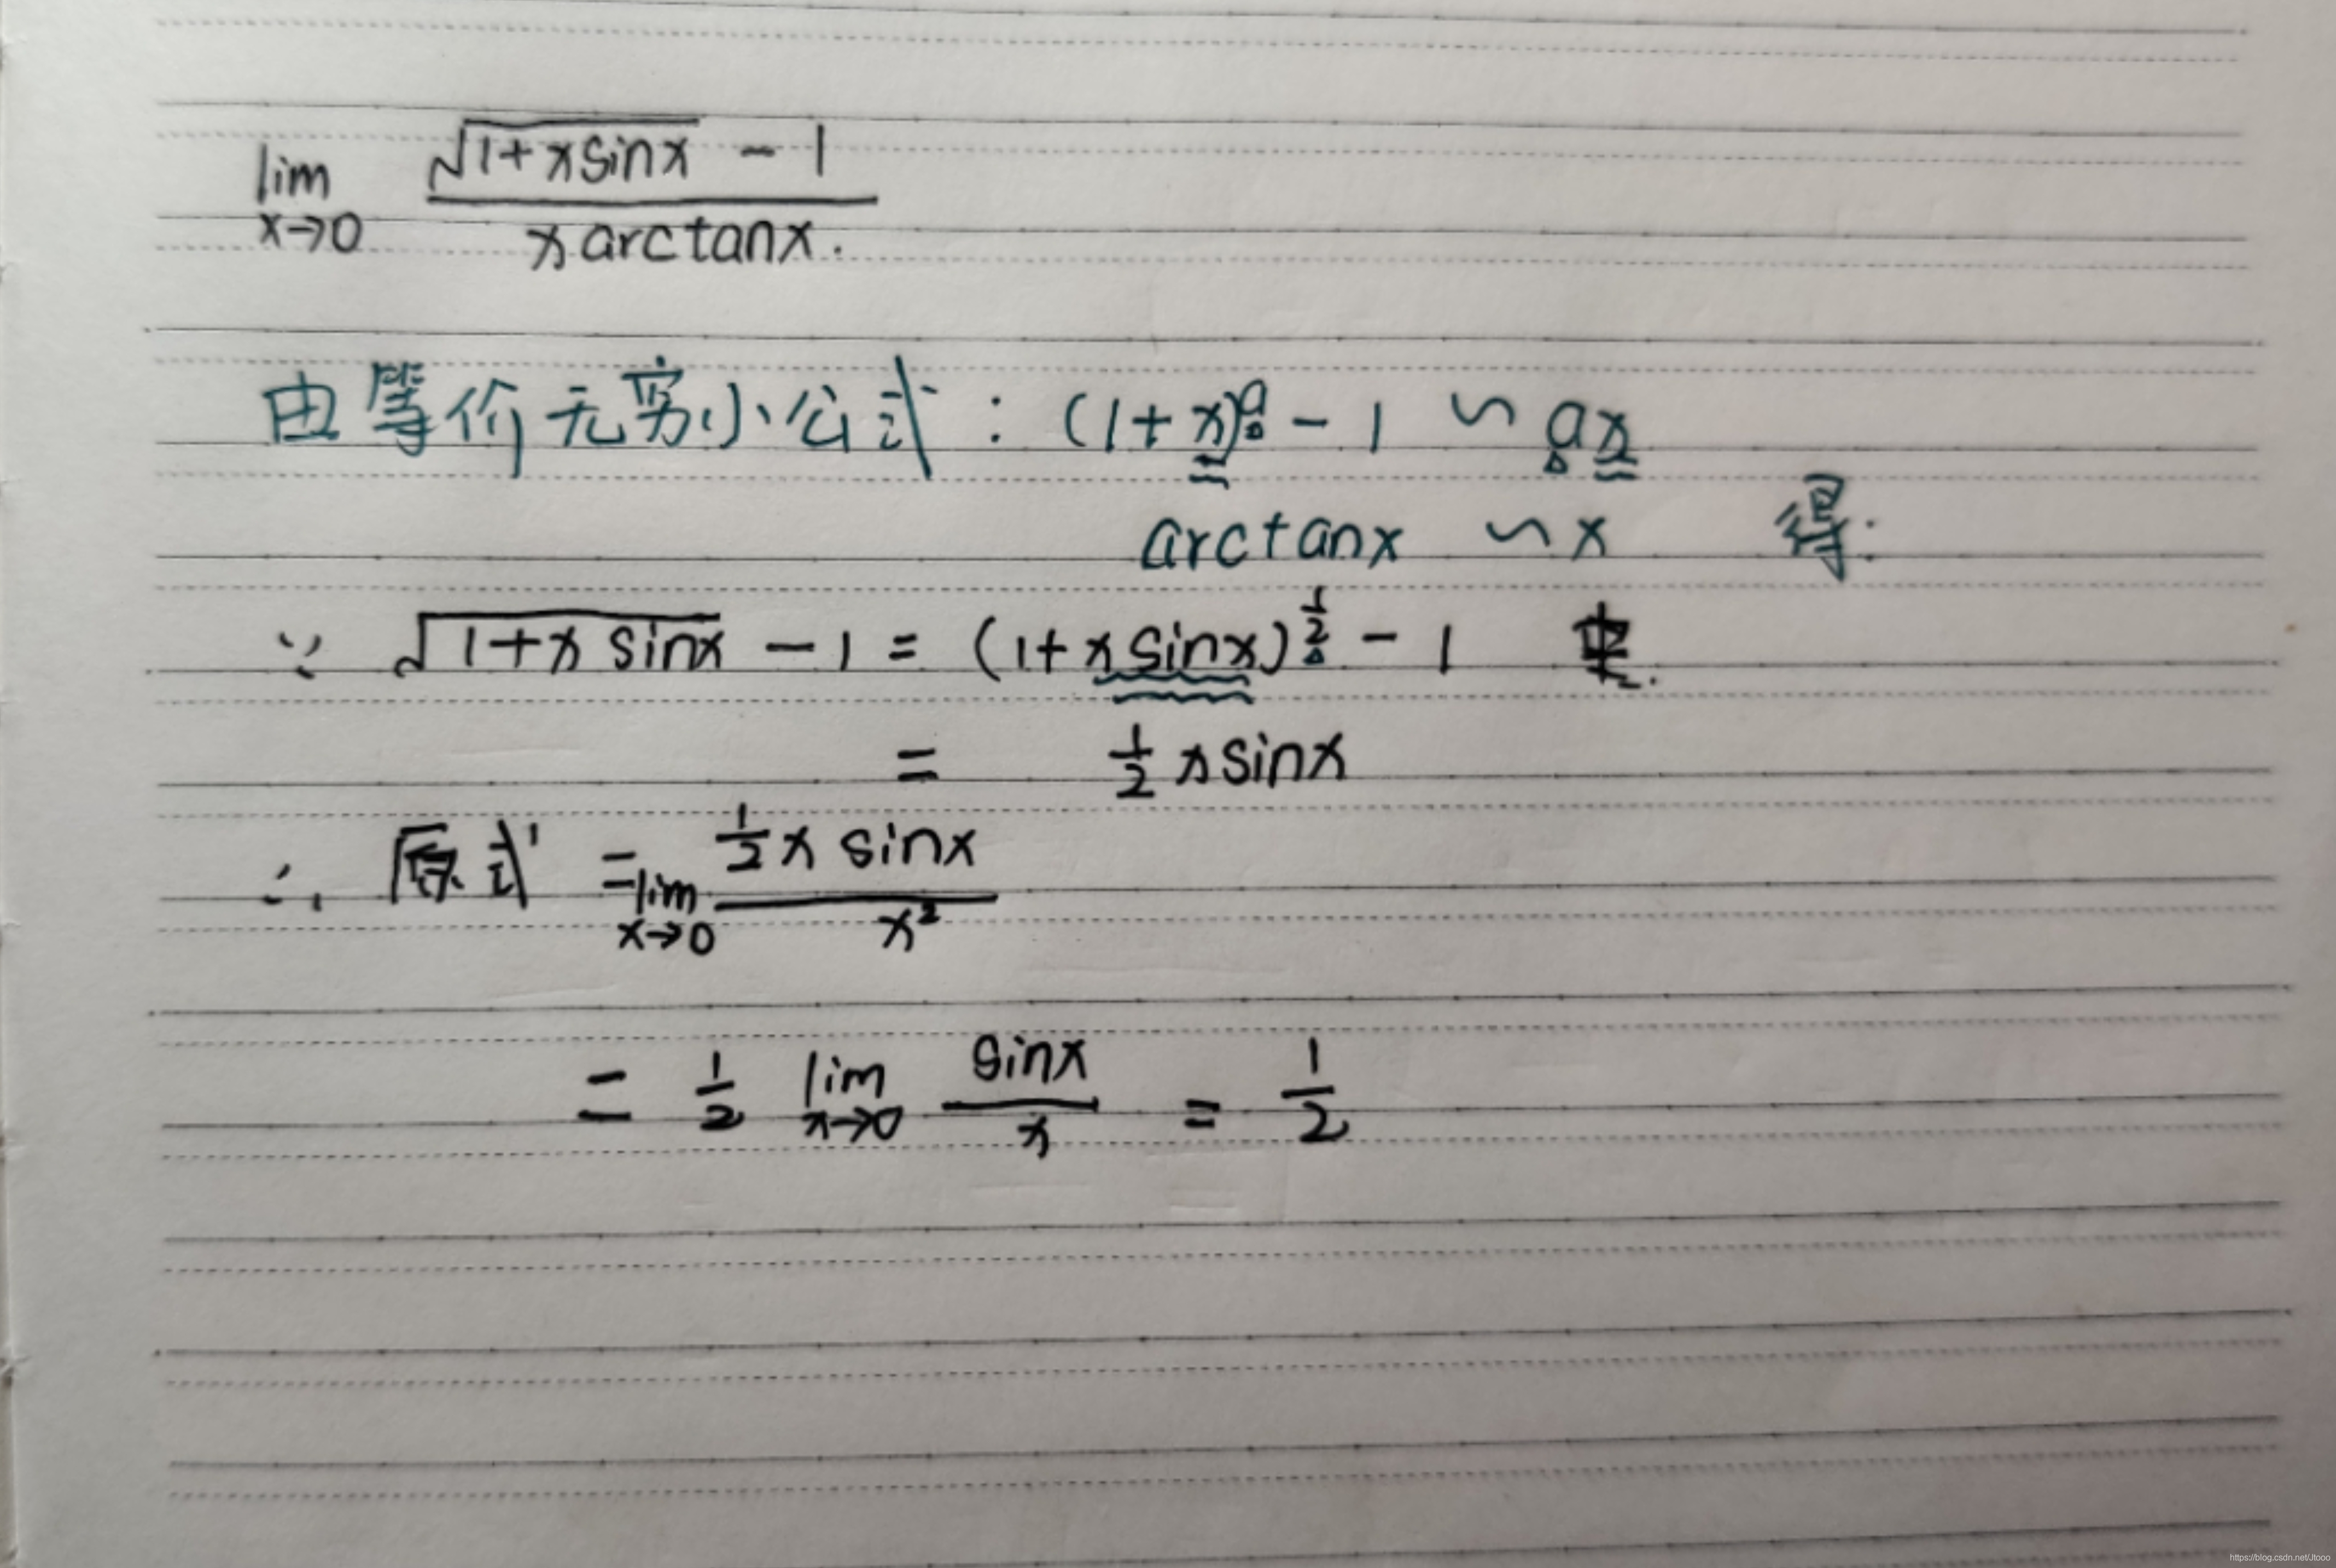 lim x→0 (√(1+x sinx) - 1) / (x arctanx).
由等价无穷小公式：(1+x)^a - 1 ∽ ax
arctanx ∽ x 得:
∵ √(1+x sinx) - 1 = (1+x sinx)^(1/2) - 1
= 1/2 x sinx
∴ 原式 = lim x→0 (1/2 x sinx) / x²
= 1/2 lim x→0 sinx / x = 1/2
https://blog.csdn.net/Jtooo